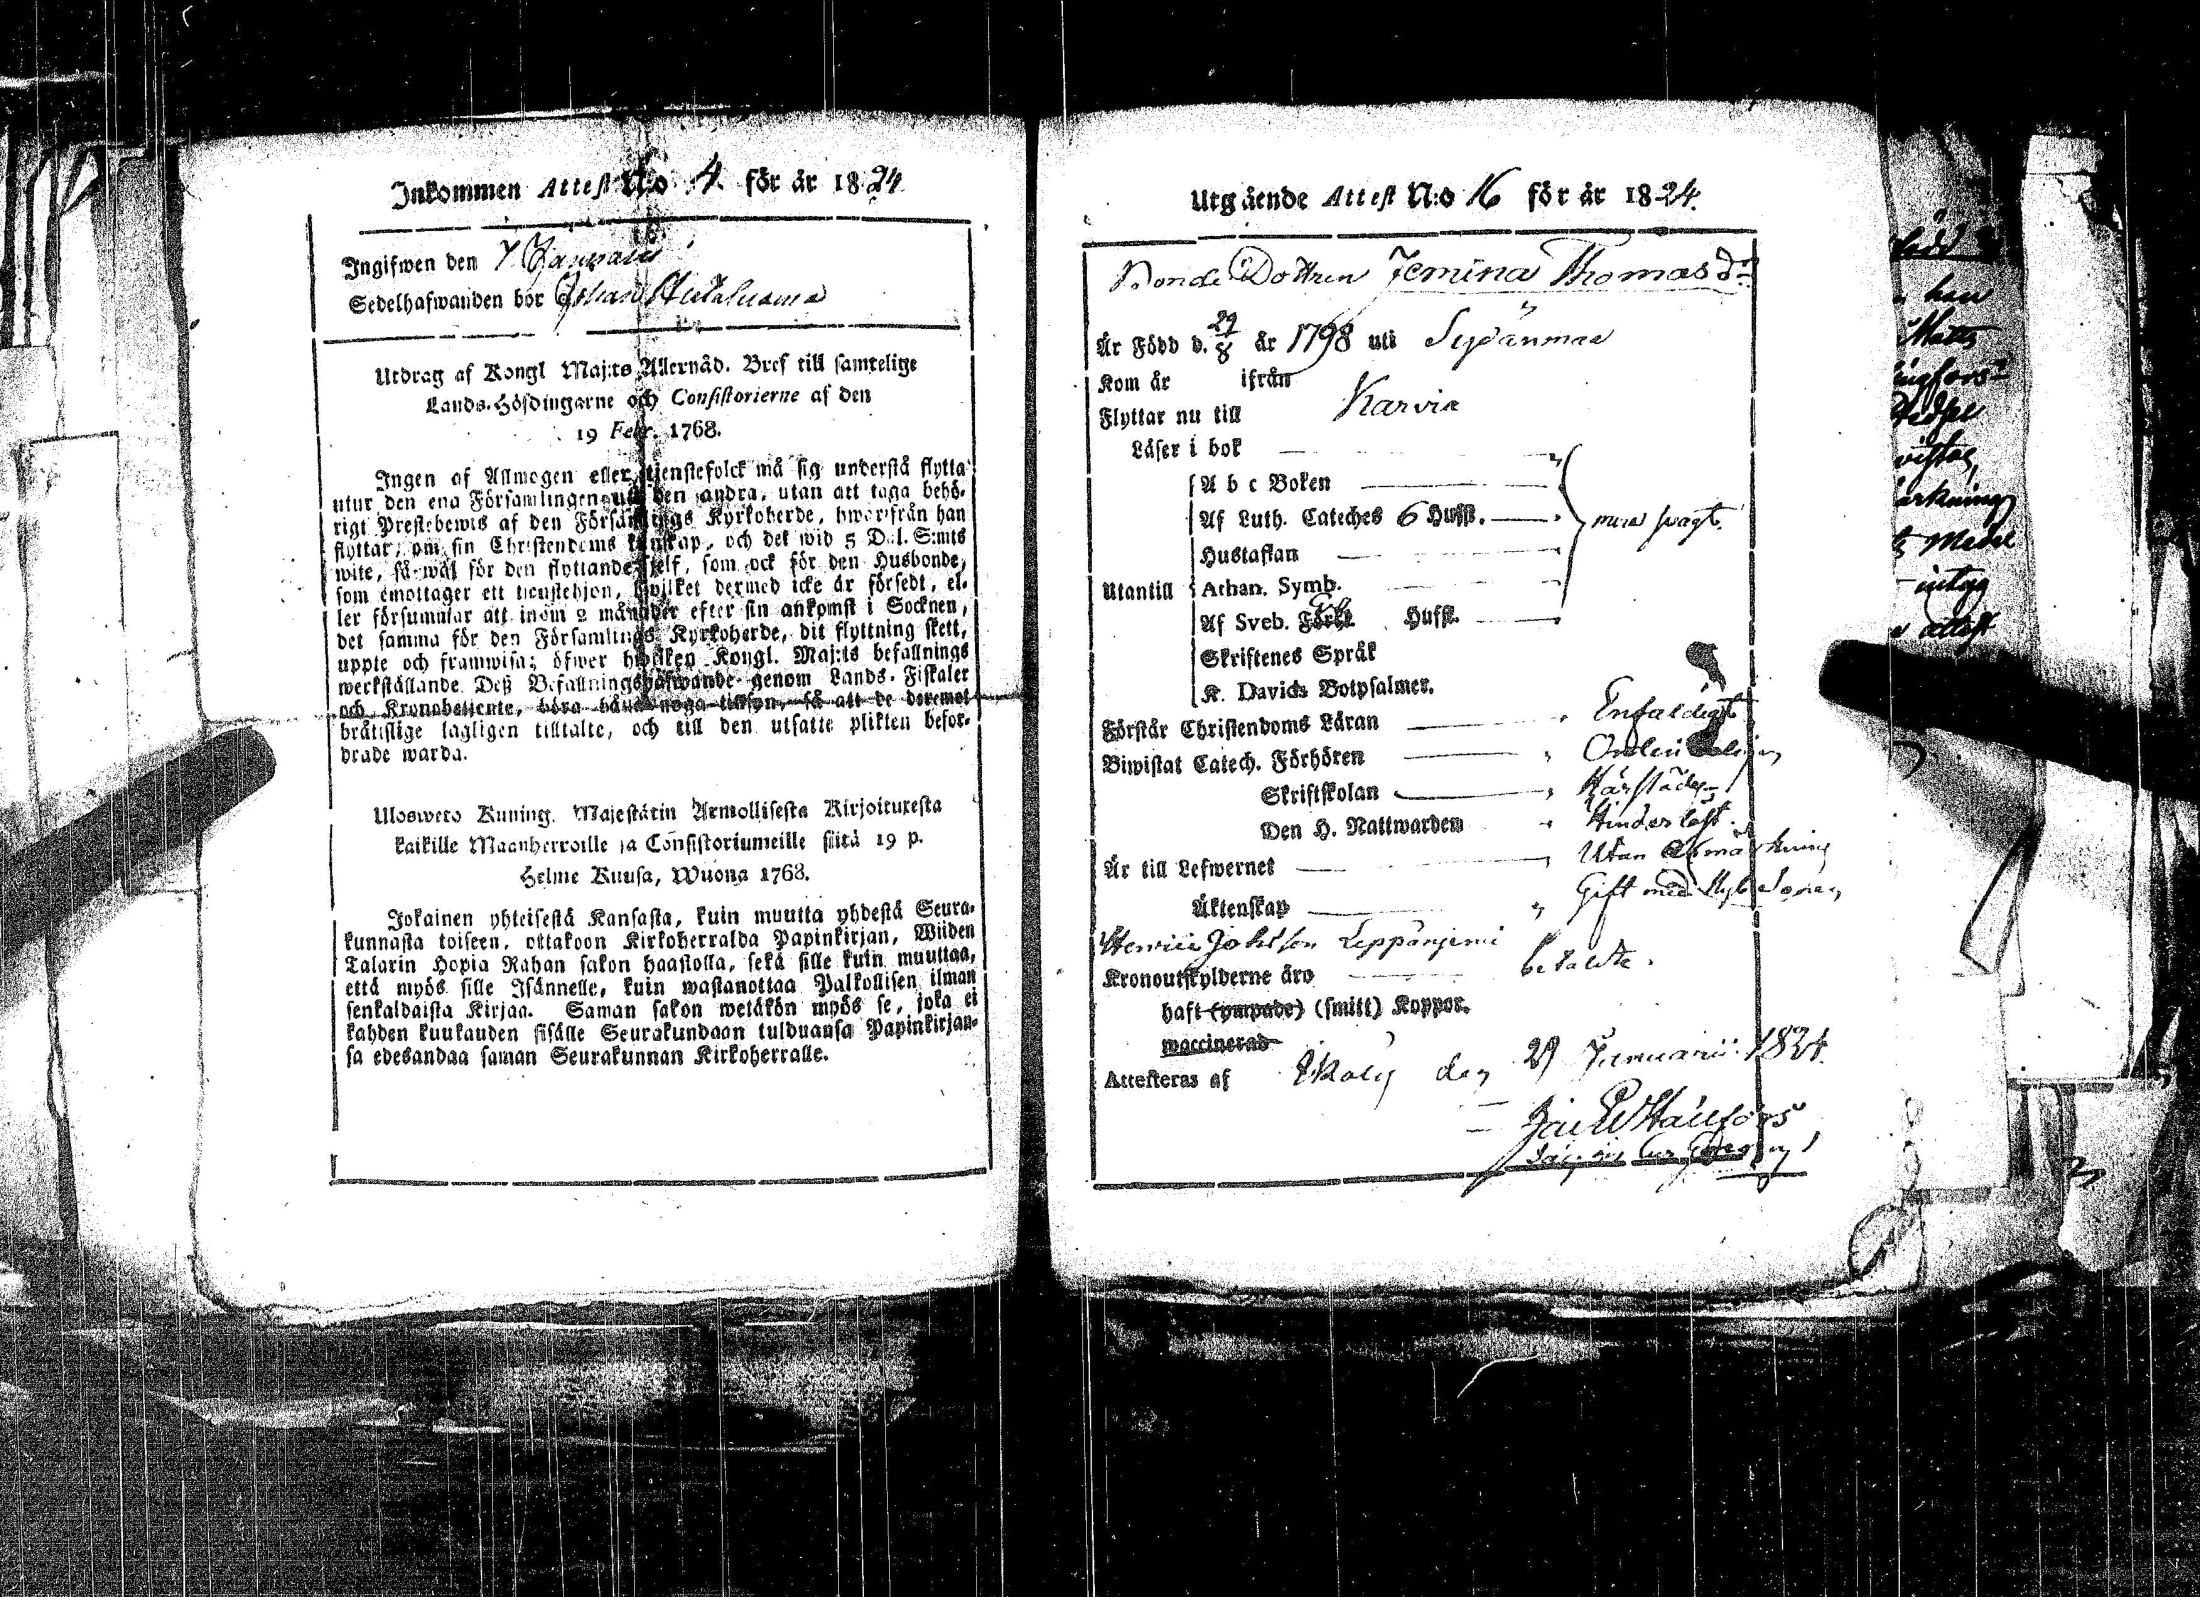 Inkommen Attest N:o 4. för år 1824
Ingifwen den 7 Januarii
Sedelhafwanden bor Johan
Utdrag af Kongl Maj:ts Allernåd. Bref till samtelige
Lands-Höfdingarne och Consistorierne af den
19 Febr. 1768.
Ingen af Allmogen eller tjenstefolck må sig understå flytta
utur den ena Församlingen uti den andra, utan att taga behö-
rigt Prestebewis af den Församlings Kyrkoherde, hworifrån han
flyttar, om sin Christendoms kunskap, och det wid 5 Dal. S:mts
wite, så wäl för den flyttande sjelf, som ock för den Husbonde,
som emottager ett tienstehjon, hwilket dermed icke är försedt, el-
ler försummar att inom 2 månader efter sin ankomst i Socknen,
det samma för den Församlings Kyrkoherde, dit flyttning skett,
uppte och framwisa; öfwer hwilken Kongl. Maj:ts befallnings
werkställande Deß Befallningshafwande genom Lands-Fiskaler
och Kronobetjente, böra hålla noga tillsyn, så att de deremot
bråtislige lagligen tilltalte, och till den utsatte plikten befor-
drade warda.
Uloswero Kuning. Majestätin Armollisesta Kirjoituresta
kaikille Maanherroille ja Consistoriumeille siitä 19 p.
Helme Kuusa, Wuona 1768.
Jokainen yhteisestä Kansasta, kuin muutta yhdestä Seura-
kunnasta toiseen, ottakoon Kirkoherralda Papinkirjan, Wiiden
Talarin Hopia Rahan sakon haastolla, sekä sille kuin muuttaa,
että myös sille Isännelle, kuin wastanottaa Palkollisen ilman
senkaldaista Kirjaa. Saman sakon wetäkön myös se, joka ei
kahden kuukauden sisälle Seurakundaan tulduansa Papinkirjan-
sa edesandaa saman Seurakunnan Kirkoherralle.
Utgående Attest N:o 16 för år 1824.
Bonde Dottren Jemina Thomas dr
Är Född d. 29/8 år 1798 uti Sydänmaa
Kom år ifrån
Flyttar nu till Karvia
Läser i bok
A b c Boken
Af Luth. Cateches 6 Hufst.
Hustaflan
Utantill Athan. Symb.
Af Sveb. Förkl Hufst.
Skriftenes Språk
K. Davids Botpsalmer.
Förstår Christendoms Läran Enfaldigt
Biwistat Catech. Förhören
Skriftskolan Härstädes
Den H. Nattwarden Hinderlöst.
Är till Lefwernet Utan Anmärkning
Äktenskap Gift med
Henric Johansson Leppänjemi
Kronoutskylderne äro betalte.
haft (ympade) (smitt) Koppor.
waccinerad
Attesteras af Ikalis den 29 Januarii 1824.